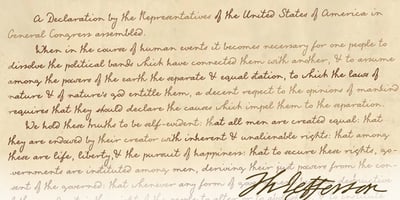 A Declaration by the Representatives of the United States of America in
General Congress assembled.
When in the course of human events it becomes necessary for one people to
dissolve the political bands which have connected them with another, & to assume
among the powers of the earth the separate & equal station, to which the laws of
nature & of nature's god entitle them, a decent respect to the opinions of mankind
requires that they should declare the causes which impel them to the separation.
We hold these truths to be self-evident: that all men are created equal: that
they are endowed by their creator with inherent & unalienable rights: that among
these are life, liberty, & the pursuit of happiness: that to secure these rights, go-
vernments are instituted among men, deriving their just powers from the con-
sent of the governed: that whenever any form of
Th Jefferson